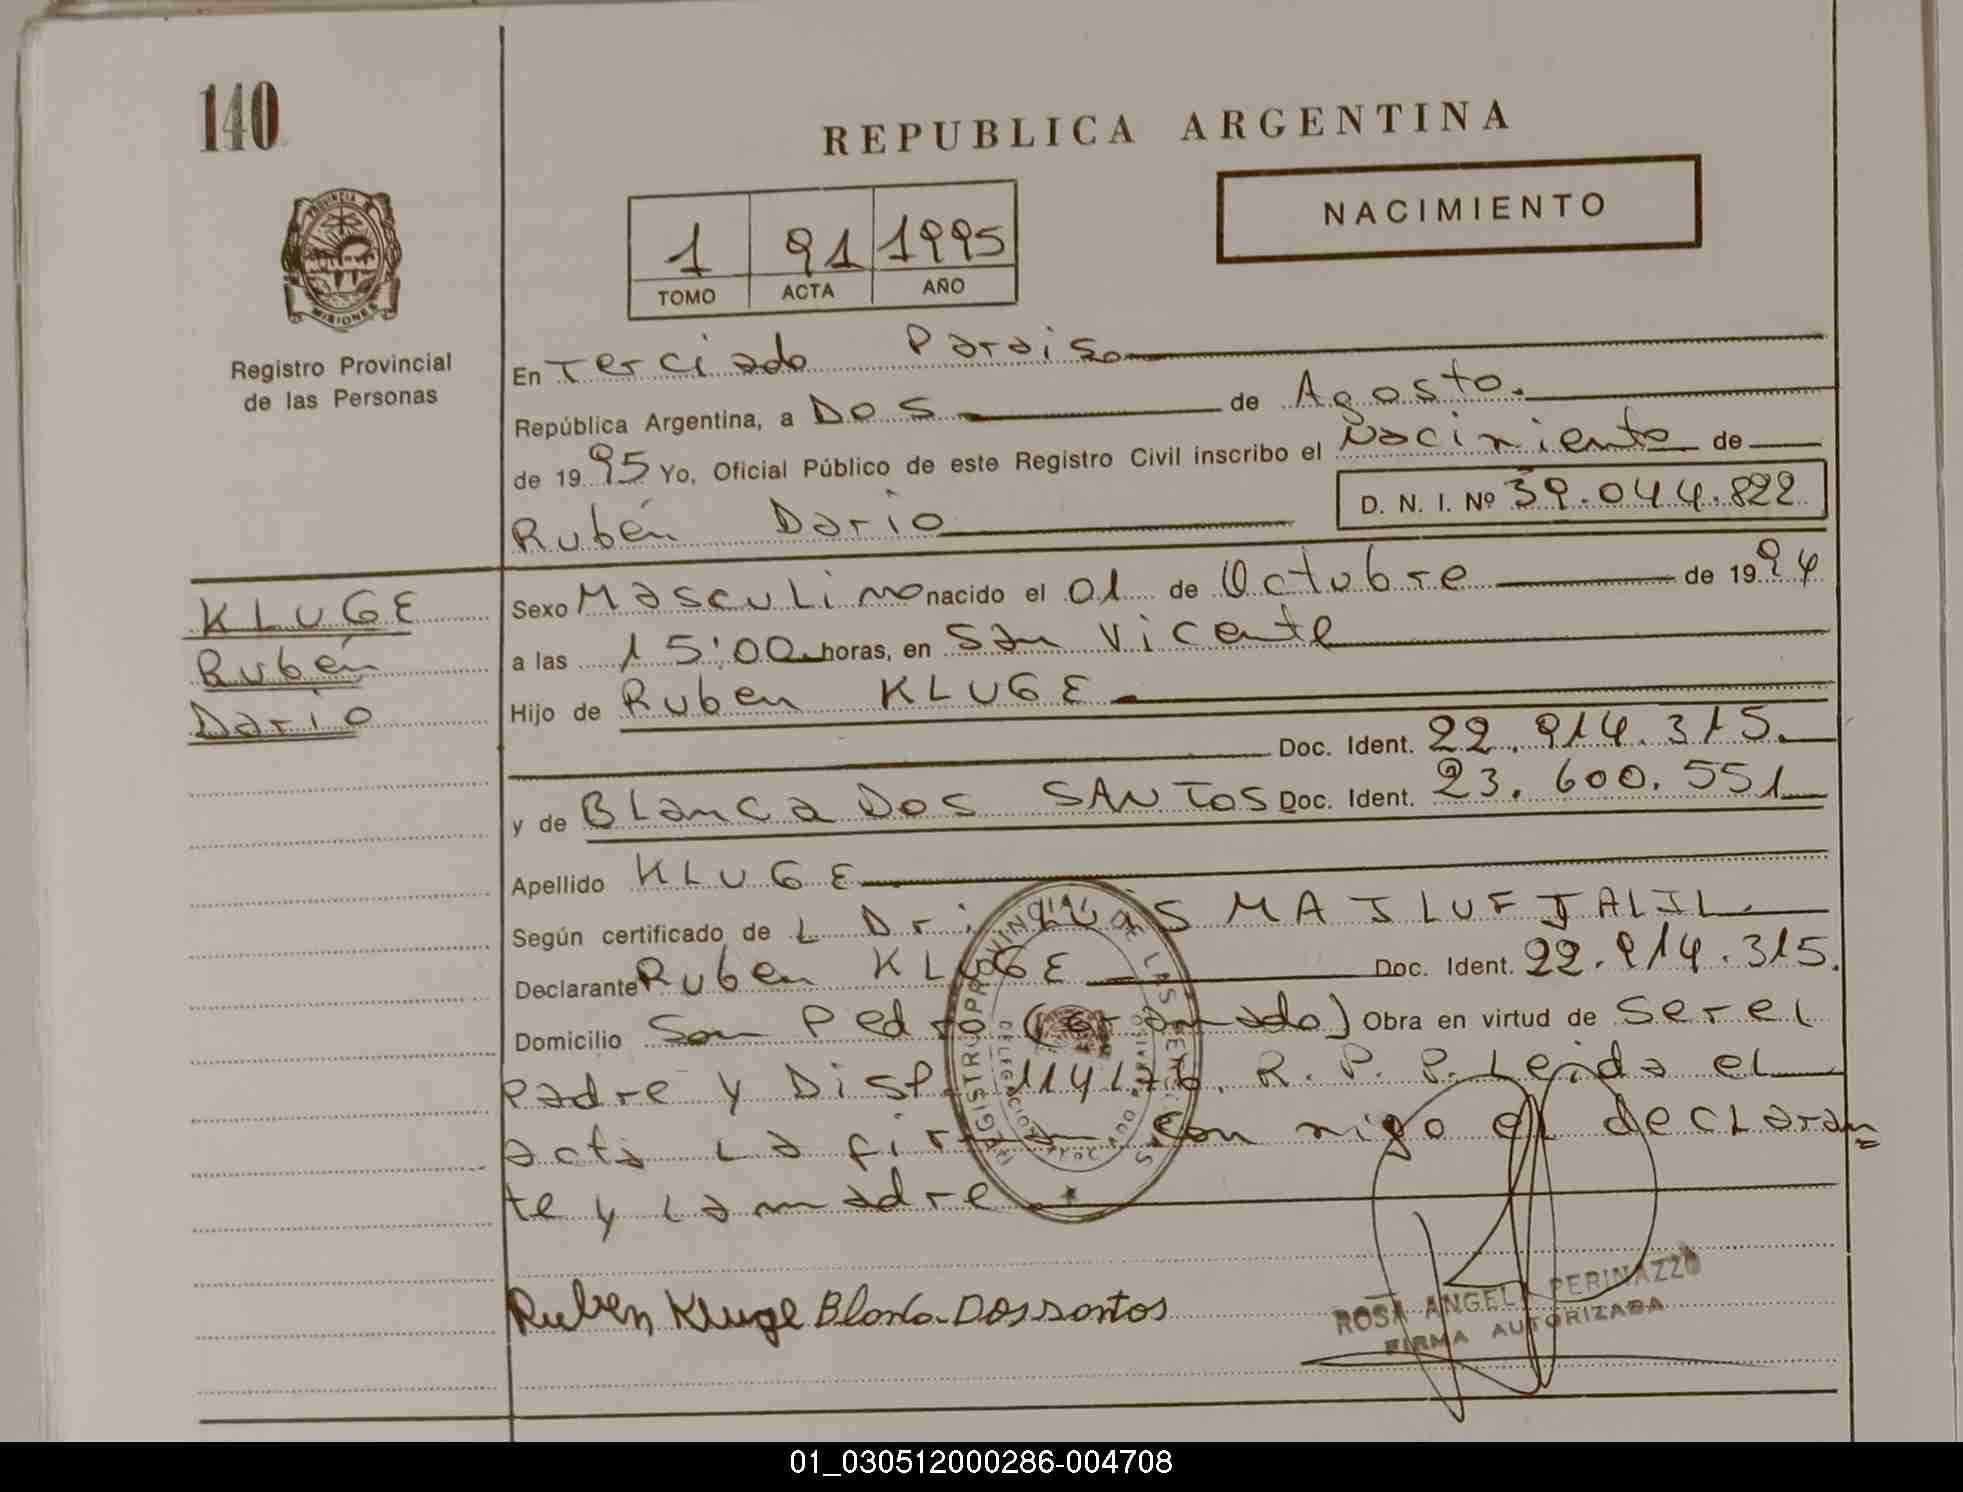 140
REPUBLICA ARGENTINA
NACIMIENTO
1 91 1995
TOMO ACTA AÑO
PROVINCIA DE
MISIONES
Registro Provincial
de las Personas
En Terciado Paraiso
República Argentina, a Dos de Agosto.
de 1995 Yo, Oficial Público de este Registro Civil inscribo el Nacimiento de
Rubén Dario
D. N. I. Nº 39.044.822
KLUGE
Rubén
Dario
Sexo Masculino nacido el 01 de Octubre de 1994
a las 15:00 horas, en San Vicente
Hijo de Ruben KLUGE
Doc. Ident. 22.914.315.
y de Blanca Dos SANTOS Doc. Ident. 23.600.551
Apellido KLUGE
Según certificado de L Dr: Luis MAJLUF JALIL.
Declarante Ruben KLUGE Doc. Ident. 22.914.315.
Domicilio San Pedro Obra en virtud de ser el
padre y Disp. R. P. P. Leida el
acta la firman conmigo el declaran=
te y la madre
REGISTRO PROVINCIAL DE LAS PERSONAS
Ruben Kluge Blanca Dos santos
ROSA ANGELA PERINAZZO
FIRMA AUTORIZADA
01_030512000286-004708